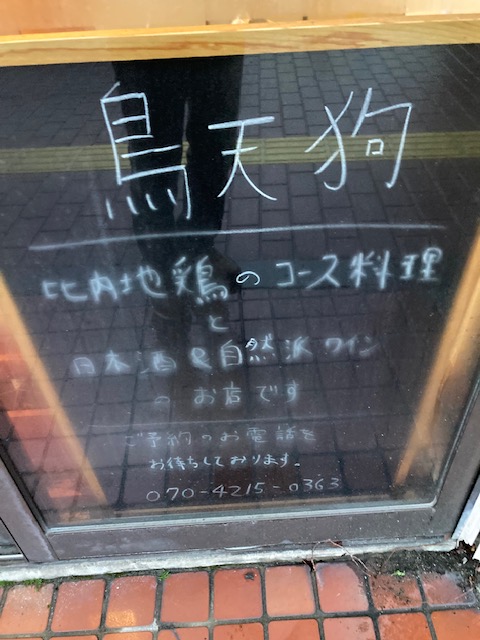 鳥天狗
比内地鶏のコース料理
と
日本酒&自然派ワイン
のお店です
ご予約のお電話を
お待ちしております。
070-4215-0363